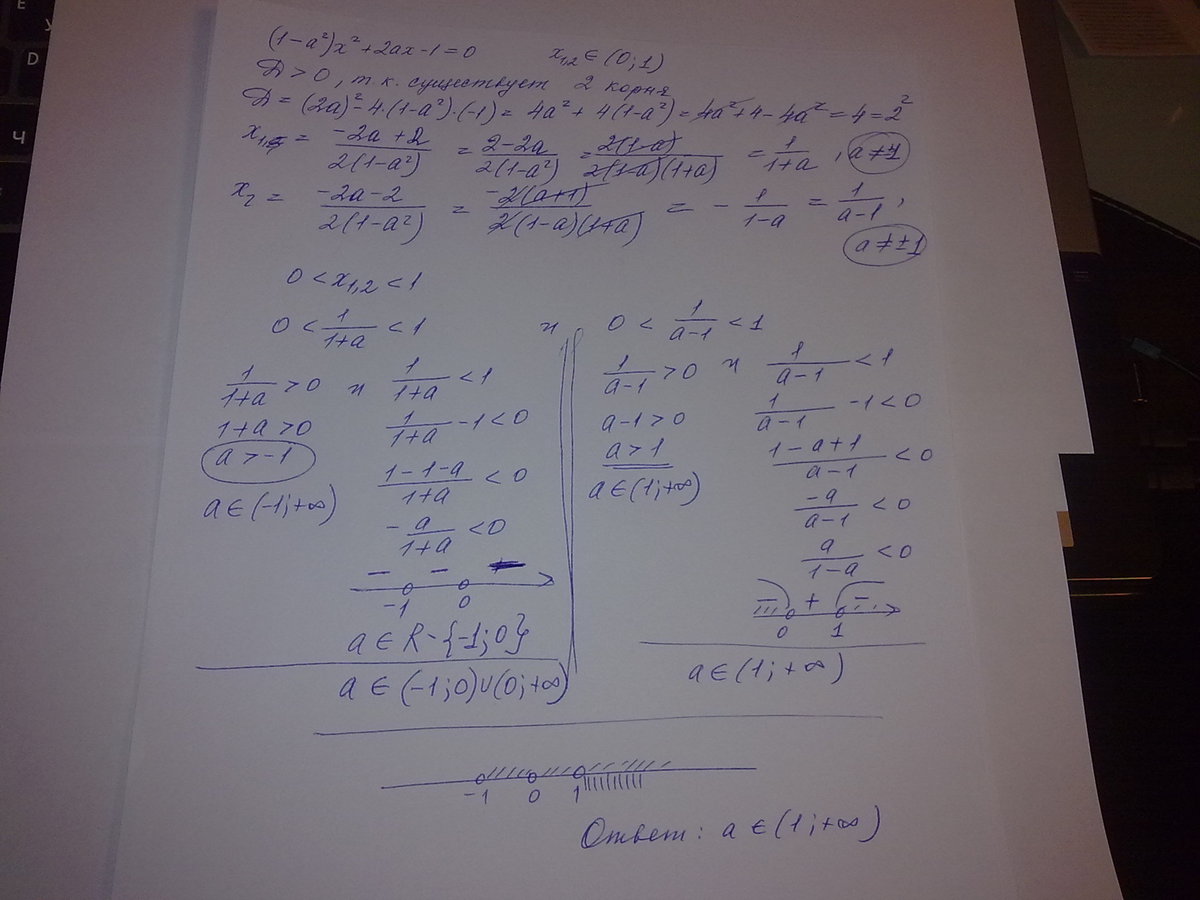 (1-a²)x²+2ax-1=0 x₁,₂ ∈ (0;1)
D>0, т.к. существует 2 корня
D = (2a)²-4·(1-a²)·(-1) = 4a²+4(1-a²) = 4a²+4-4a² = 4 = 2²
x₁ = (-2a+2)/(2(1-a²)) = (2-2a)/(2(1-a²)) = (2(1-a))/(2(1-a)(1+a)) = 1/(1+a), a≠1
x₂ = (-2a-2)/(2(1-a²)) = (-2(a+1))/(2(1-a)(1+a)) = -1/(1-a) = 1/(a-1),
a≠±1
0 < x₁,₂ < 1
0 < 1/(1+a) < 1 и
1/(1+a) > 0 и 1/(1+a) < 1
1+a>0 1/(1+a) -1<0
a>-1 (1-1-a)/(1+a) < 0
a∈(-1;+∞) -a/(1+a) <0
− − +
-1 0
a ∈ R-{-1;0}
a ∈ (-1;0)∪(0;+∞)
0 < 1/(a-1) < 1
1/(a-1) >0 и 1/(a-1) <1
a-1>0 1/(a-1) -1<0
a>1 (1-a+1)/(a-1) <0
a∈(1;+∞) -a/(a-1) <0
a/(1-a) <0
− + −
0 1
a∈(1;+∞)
-1 0 1
Ответ: a∈(1;+∞)